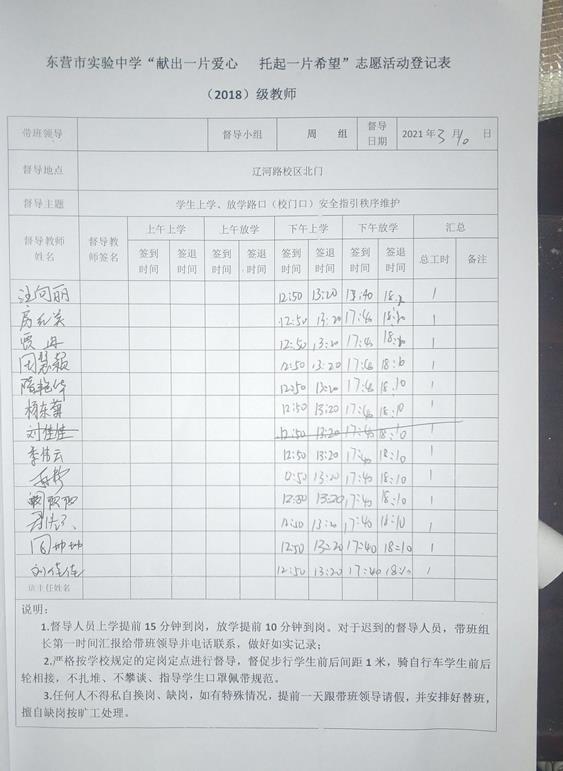 东营市实验中学“献出一片爱心 托起一片希望”志愿活动登记表
（2018）级教师
带班领导 督导小组 周 组 督导日期 2021年3月10日
督导地点 辽河路校区北门
督导主题 学生上学、放学路口（校门口）安全指引秩序维护
督导教师姓名 督导教师签名 上午上学 上午放学 下午上学 下午放学 汇总
签到时间 签退时间 签到时间 签退时间 签到时间 签退时间 签到时间 签退时间 总工时 备注
12:50 13:20 1
12:50 13:20 17:40 1
12:50 13:20 17:40 1
12:50 13:20 1
12:50 13:20 17:40 18:10 1
杨东 12:50 13:20 17:40 18:10 1
刘佳佳 12:50 13:20 17:40 18:10 1
李传云 12:50 13:20 17:40 18:10 1
13:20 17:40 18:10 1
13:20 17:40 18:10 1
17:40 18:10 1
12:50 13:20 17:40 18:10 1
刘佳佳 12:50 13:20 17:40 18:10 1
班主任姓名
说明：
1.督导人员上学提前15分钟到岗，放学提前10分钟到岗。对于迟到的督导人员，带班组
长第一时间汇报给带班领导并电话联系，做好如实记录；
2.严格按学校规定的定岗定点进行督导，督促步行学生前后间距1米，骑自行车学生前后
轮相接，不扎堆、不攀谈、指导学生口罩佩带规范。
3.任何人不得私自换岗、缺岗，如有特殊情况，提前一天跟带班领导请假，并安排好替班，
擅自缺岗按旷工处理。